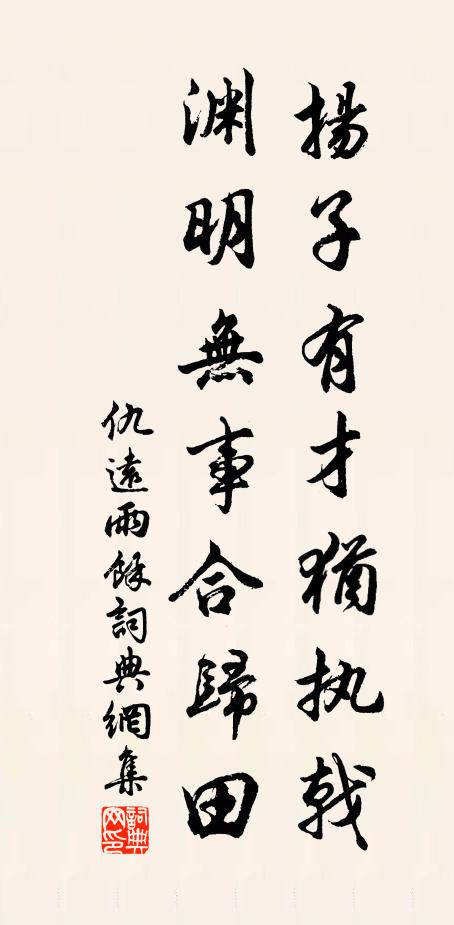 揚子有才猶执戟
淵明無事合歸田
仇遠雨餘詞典網集
詞典网印